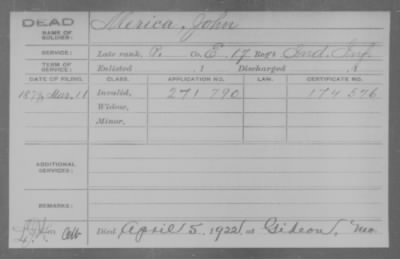 DEAD
NAME OF
SOLDIER:
Merica, John
SERVICE:
Late rank, P. Co. E. 17 Reg't Ind. Inf.
TERM OF
SERVICE:
Enlisted 1 Discharged 1
DATE OF FILING. CLASS. APPLICATION NO. LAW. CERTIFICATE NO.
1879, Mar. 11 Invalid, 271 790 174 576
Widow,
Minor,
ADDITIONAL
SERVICES:
REMARKS:
Died April 5, 1922, at Gideon, Mo